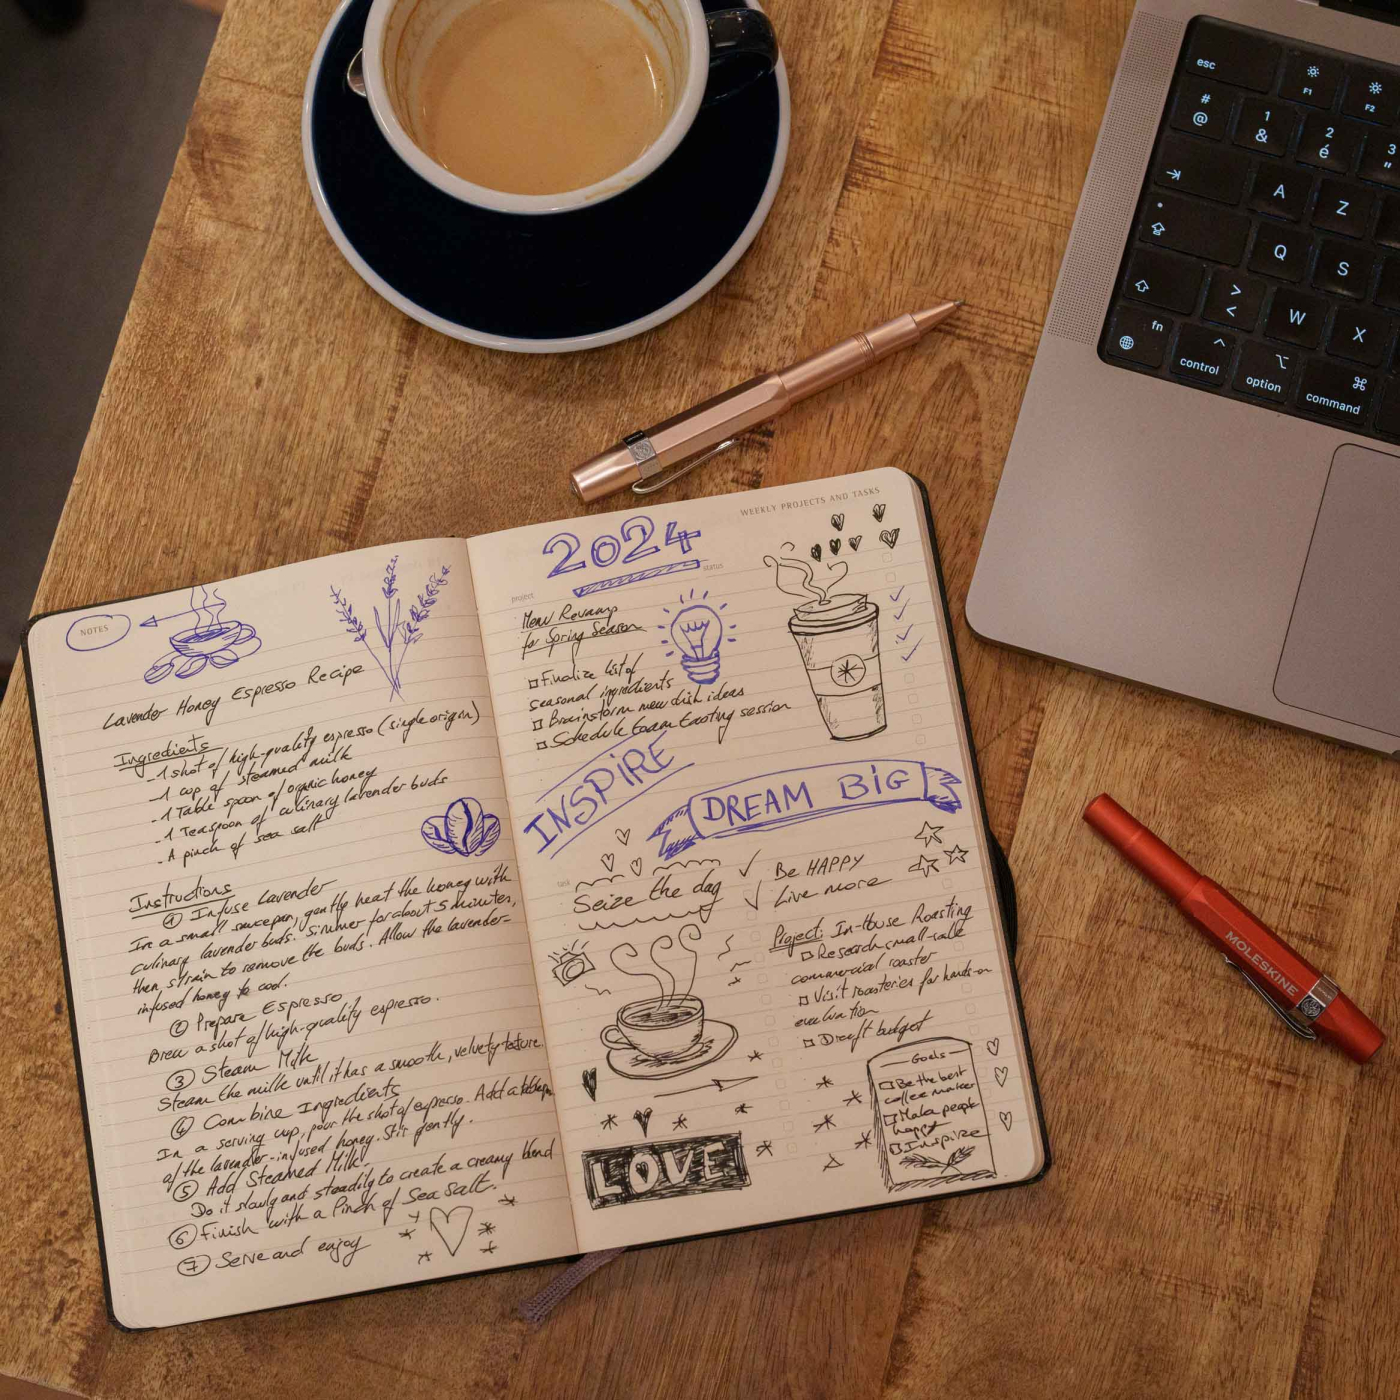 esc
F1
F2
#
@
1
&
2
é
3
"
A
Z
Q
S
>
<
W
X
fn
control
option
command
⌘
MOLESKINE
NOTES
Lavender Honey Espresso Recipe
Ingredients
-1 shot of high-quality espresso (single origin)
-1 cup of steamed milk
-1 Table spoon of organic honey
-1 Teaspoon of culinary lavender buds
-A pinch of sea salt
Instructions
① Infuse Lavender
In a small saucepan, gently heat the honey with
culinary lavender buds. Simmer for about 5 minutes,
then, strain to remove the buds. Allow the lavender-
infused honey to cool.
② Prepare Espresso
Brew a shot of high-quality espresso.
③ Steam Milk
Steam the milk until it has a smooth, velvety texture.
④ Combine Ingredients
In a serving cup, pour the shot of espresso. Add a
of the lavender-infused honey. Stir gently.
⑤ Add Steamed Milk.
Do it slowly and steadily to create a creamy blend
⑥ Finish with a Pinch of Sea Salt.
⑦ Serve and enjoy
WEEKLY PROJECTS AND TASKS
2024
project
status
Menu Revamp
for Spring Season
Finalize list of
seasonal ingredients
Brainstorm new dish ideas
Schedule team tasting session
INSPIRE
DREAM BiG
task
Seize the day
Be HAPPY
Live more
Project: In-House Roasting
Research small-scale
commercial roaster
Visit roasteries for hands-on
evaluation
Draft budget
LOVE
Goals
Be the best
coffee maker
Make people
happy
Inspire